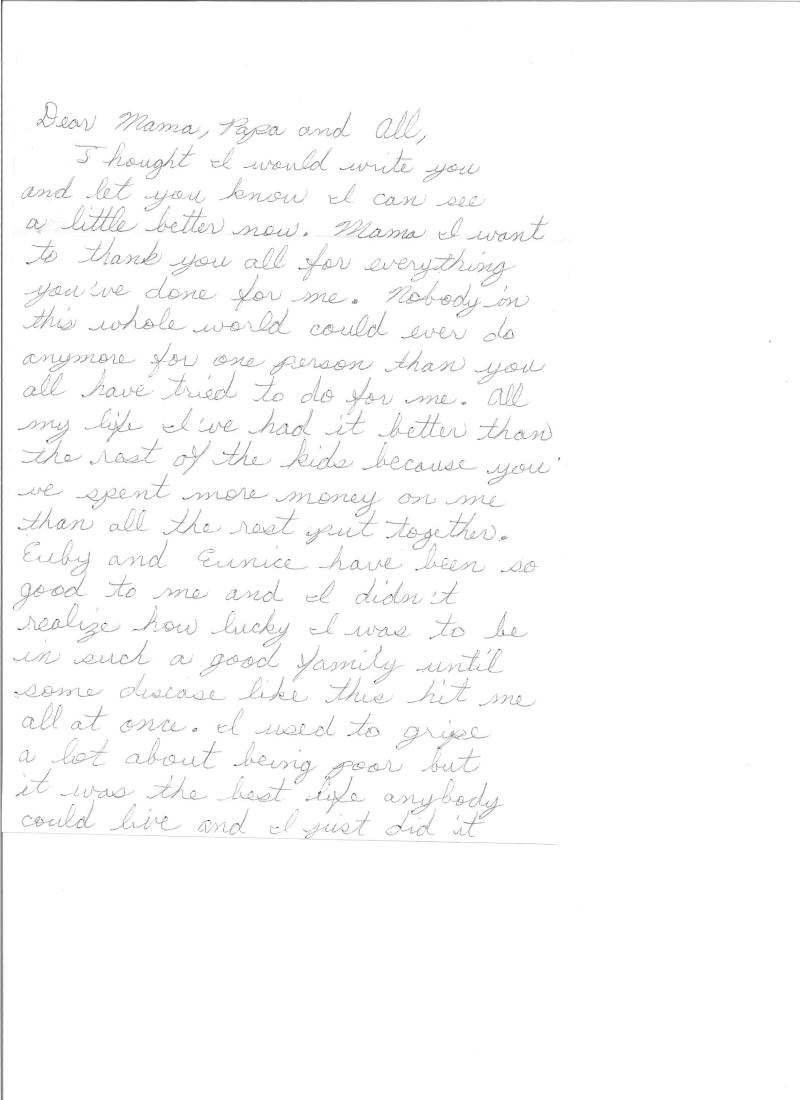 Dear Mama, Papa and All,
Thought I would write you
and let you know I can see
a little better now. Mama I want
to thank you all for everything
you've done for me. Nobody in
this whole world could ever do
anymore for one person than you
all have tried to do for me. All
my life I've had it better than
the rest of the kids because you'
ve spent more money on me
than all the rest put together.
Euby and Eunice have been so
good to me and I didn't
realize how lucky I was to be
in such a good family until
some disease like this hit me
all at once. I used to gripe
a lot about being poor but
it was the best life anybody
could live and I just did it